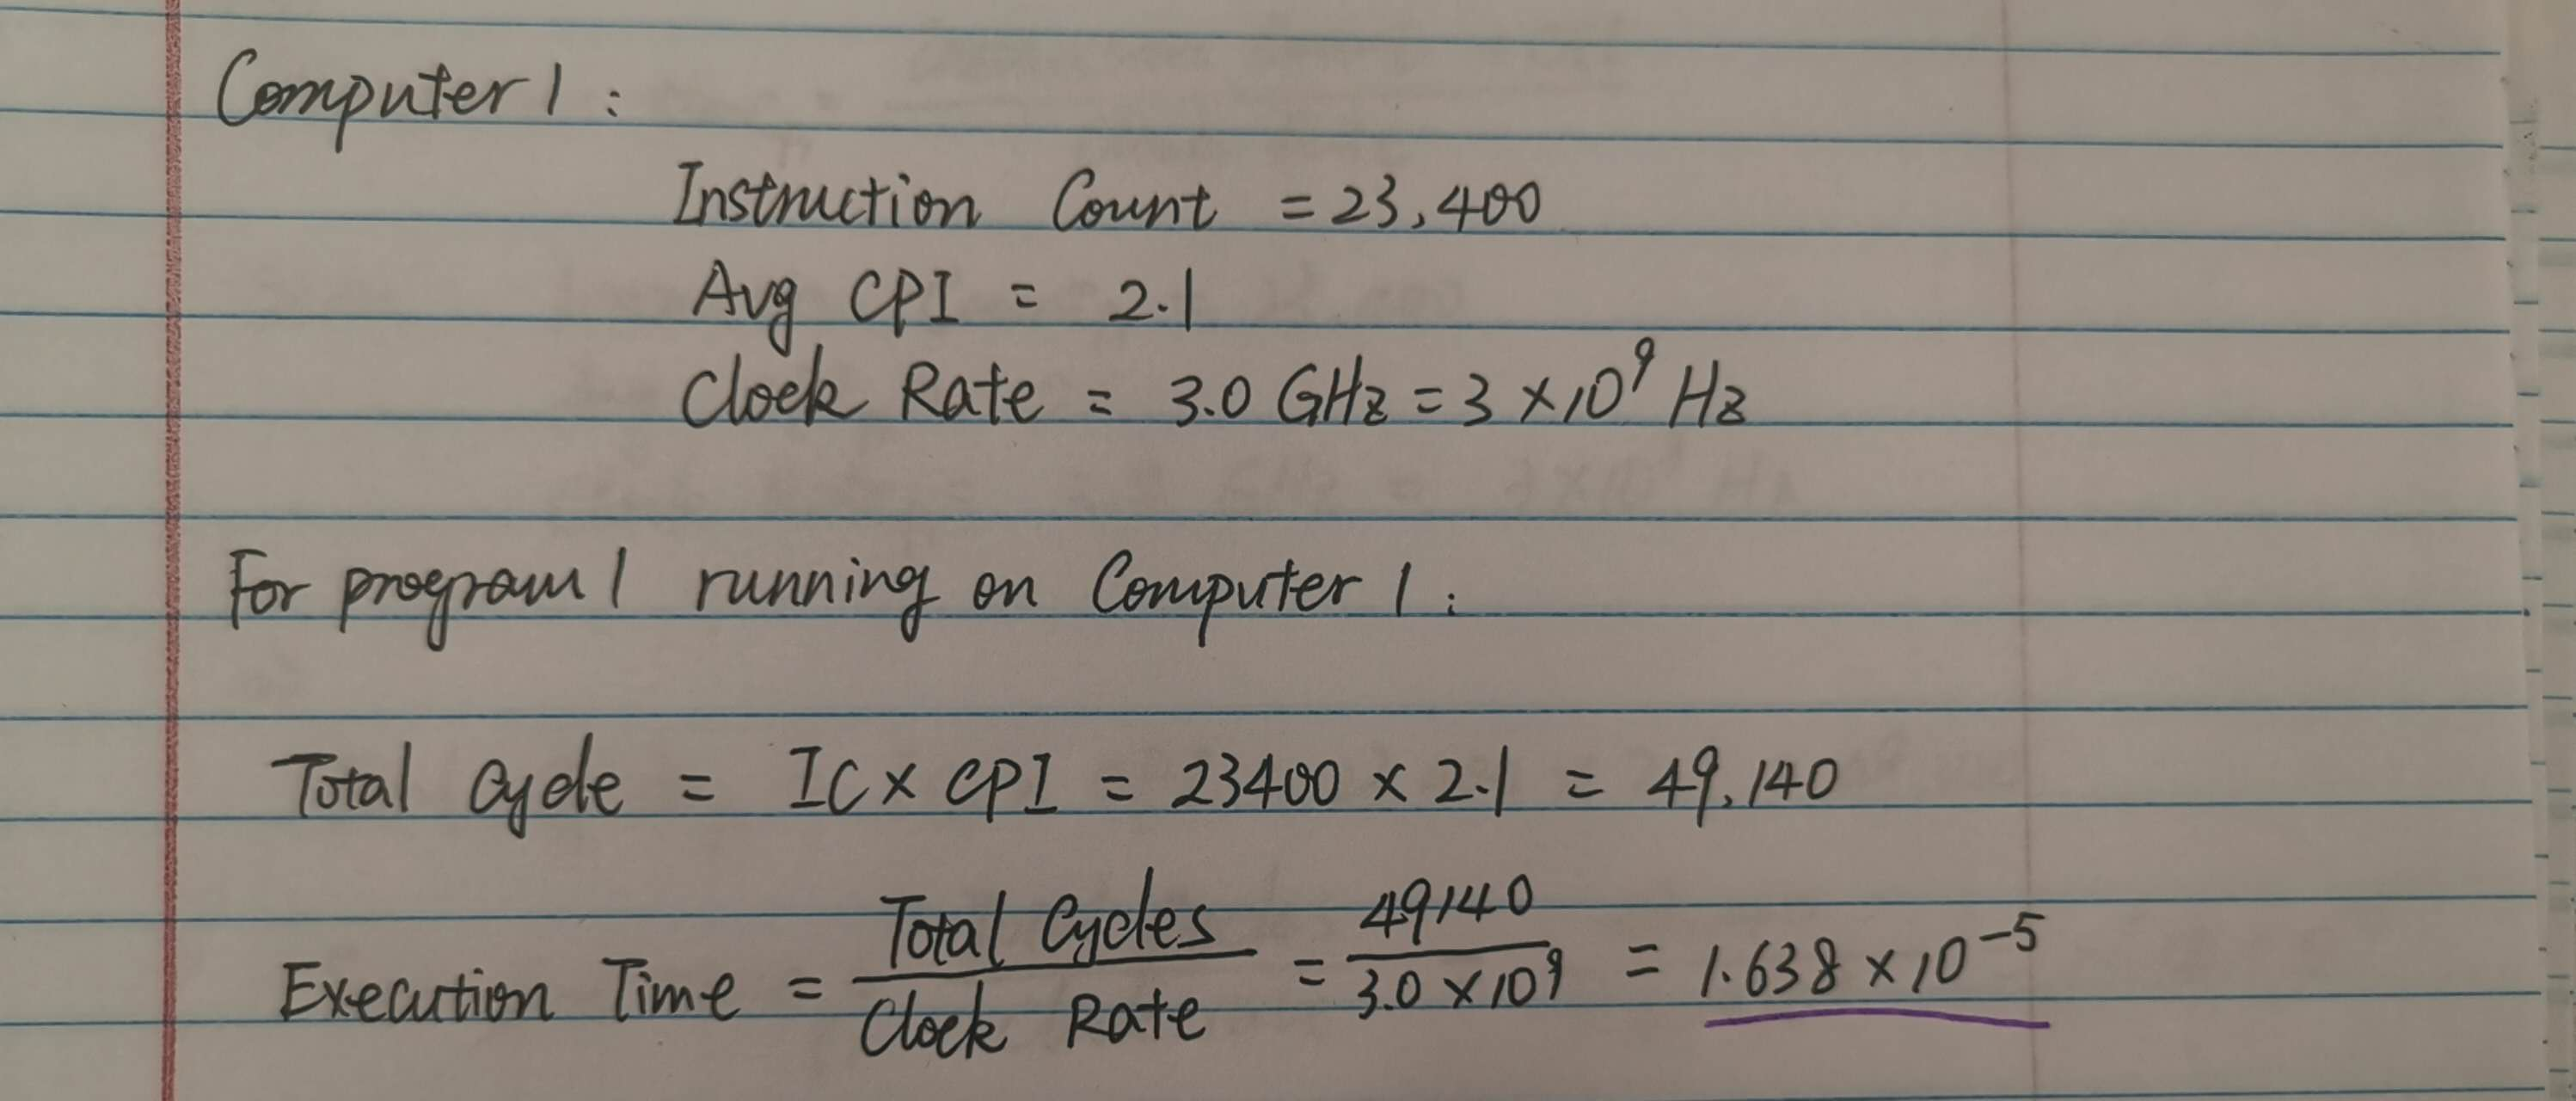 Computer 1 :
Instruction Count = 23,400
Avg CPI = 2.1
Clock Rate = 3.0 GHz = 3 × 10⁹ Hz
For program 1 running on Computer 1 :
Total Cycle = IC × CPI = 23400 × 2.1 = 49,140
Execution Time = Total Cycles / Clock Rate = 49140 / 3.0 × 10⁹ = 1.638 × 10⁻⁵